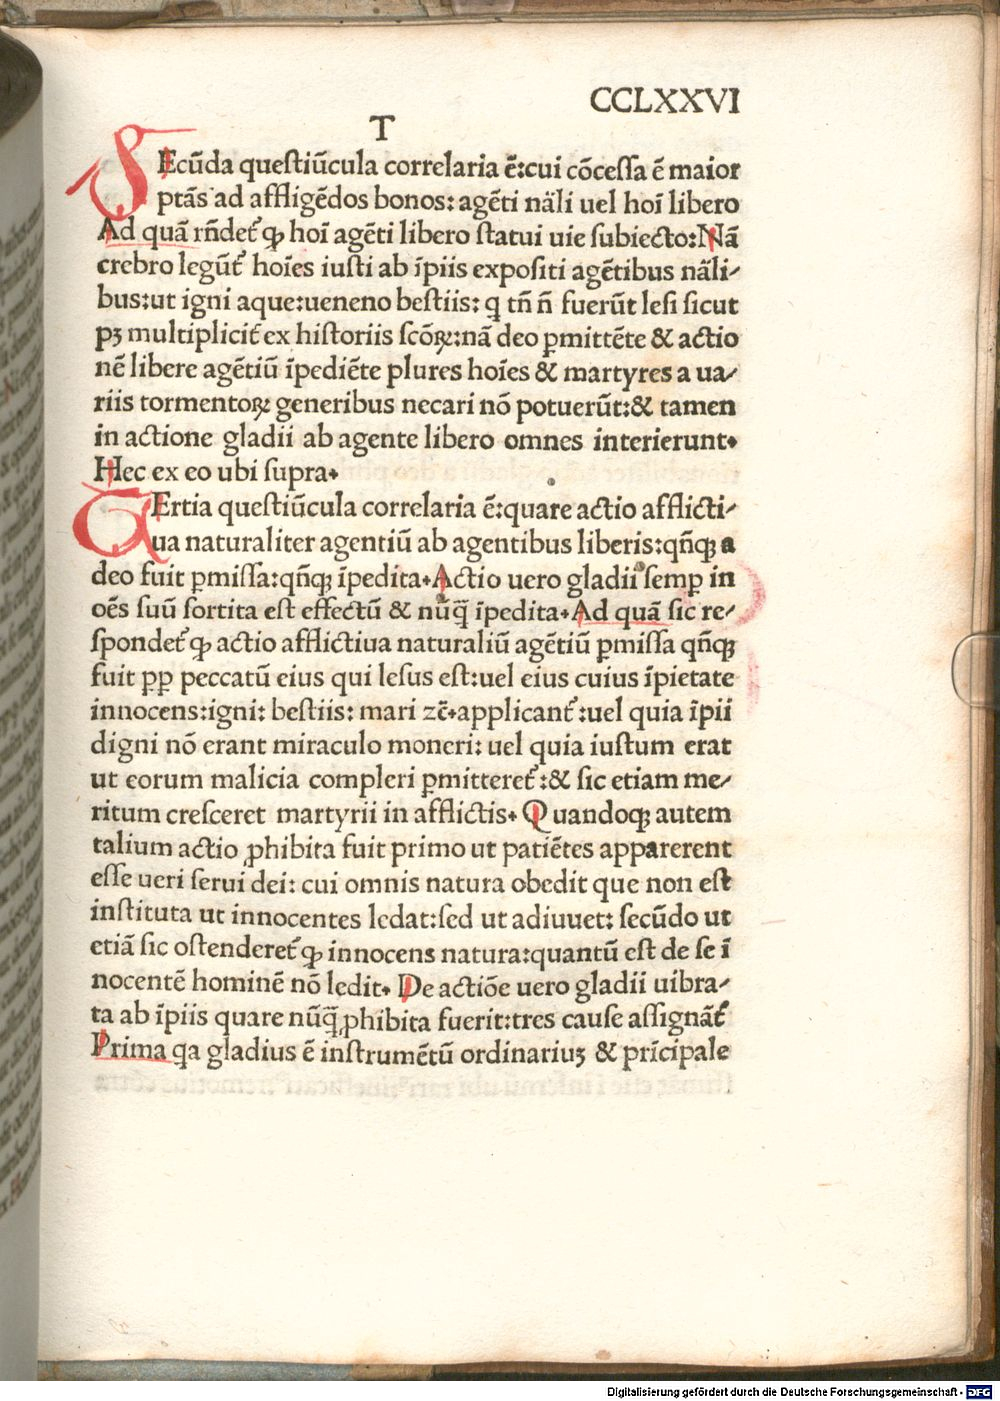 CCLXXVI
T
SEcūda questiūcula correlaria ē:cui cōcessa ē maior
ptās ad affligēdos bonos: agēti nāli uel hoī libero
Ad quā rn̄det᷑ ꝙ hoī agēti libero statui uie subiecto:Nā
crebro legūt᷑ hoīes iusti ab īpiis expositi agētibus nāli⸗
bus:ut igni aque:ueneno bestiis: q tn̄ n̄ fuerūt lesi sicut
pꝫ multiplicit᷑ ex historiis scōꝝ:nā deo ꝑmittēte & actio
nē libere agētiū īpediēte plures hoīes & martyres a ua⸗
riis tormentoꝝ generibus necari nō potuerūt:& tamen
in actione gladii ab agente libero omnes interierunt.
Hec ex eo ubi supra.
TErtia questiūcula correlaria ē:quare actio afflicti⸗
ua naturaliter agentiū ab agentibus liberis:qn̄qꝫ a
deo fuit ꝑmissa:qn̄qꝫ īpedita.Actio uero gladii semꝑ in
oēs suū sortita est effectū & nūq̄ īpedita.Ad quā sic re⸗
spondet᷑ ꝙ actio afflictiua naturaliū agētiū ꝑmissa qn̄qꝫ
fuit ꝓꝑ peccatū eius qui lesus est:uel eius cuius īpietate
innocens:igni: bestiis: mari zc̄.applicant᷑ :uel quia īpii
digni nō erant miraculo moneri: uel quia iustum erat
ut eorum malicia compleri ꝑmitteret᷑ :& sic etiam me⸗
ritum cresceret martyrii in afflictis. Quandoqꝫ autem
talium actio ꝓhibita fuit primo ut patiētes apparerent
esse ueri serui dei: cui omnis natura obedit que non est
instituta ut innocentes ledat:sed ut adiuuet: secūdo ut
etiā sic ostenderet᷑ ꝙ innocens natura:quantū est de se ī
nocentē hominē nō ledit. De actiōe uero gladii uibra⸗
ta ab īpiis quare nūq̄ ꝓhibita fuerit:tres cause assignāt᷑
Prima qa gladius ē instrumētū ordinariuꝫ & prīcipale
Digitalisierung gefördert durch die Deutsche Forschungsgemeinschaft - DFG